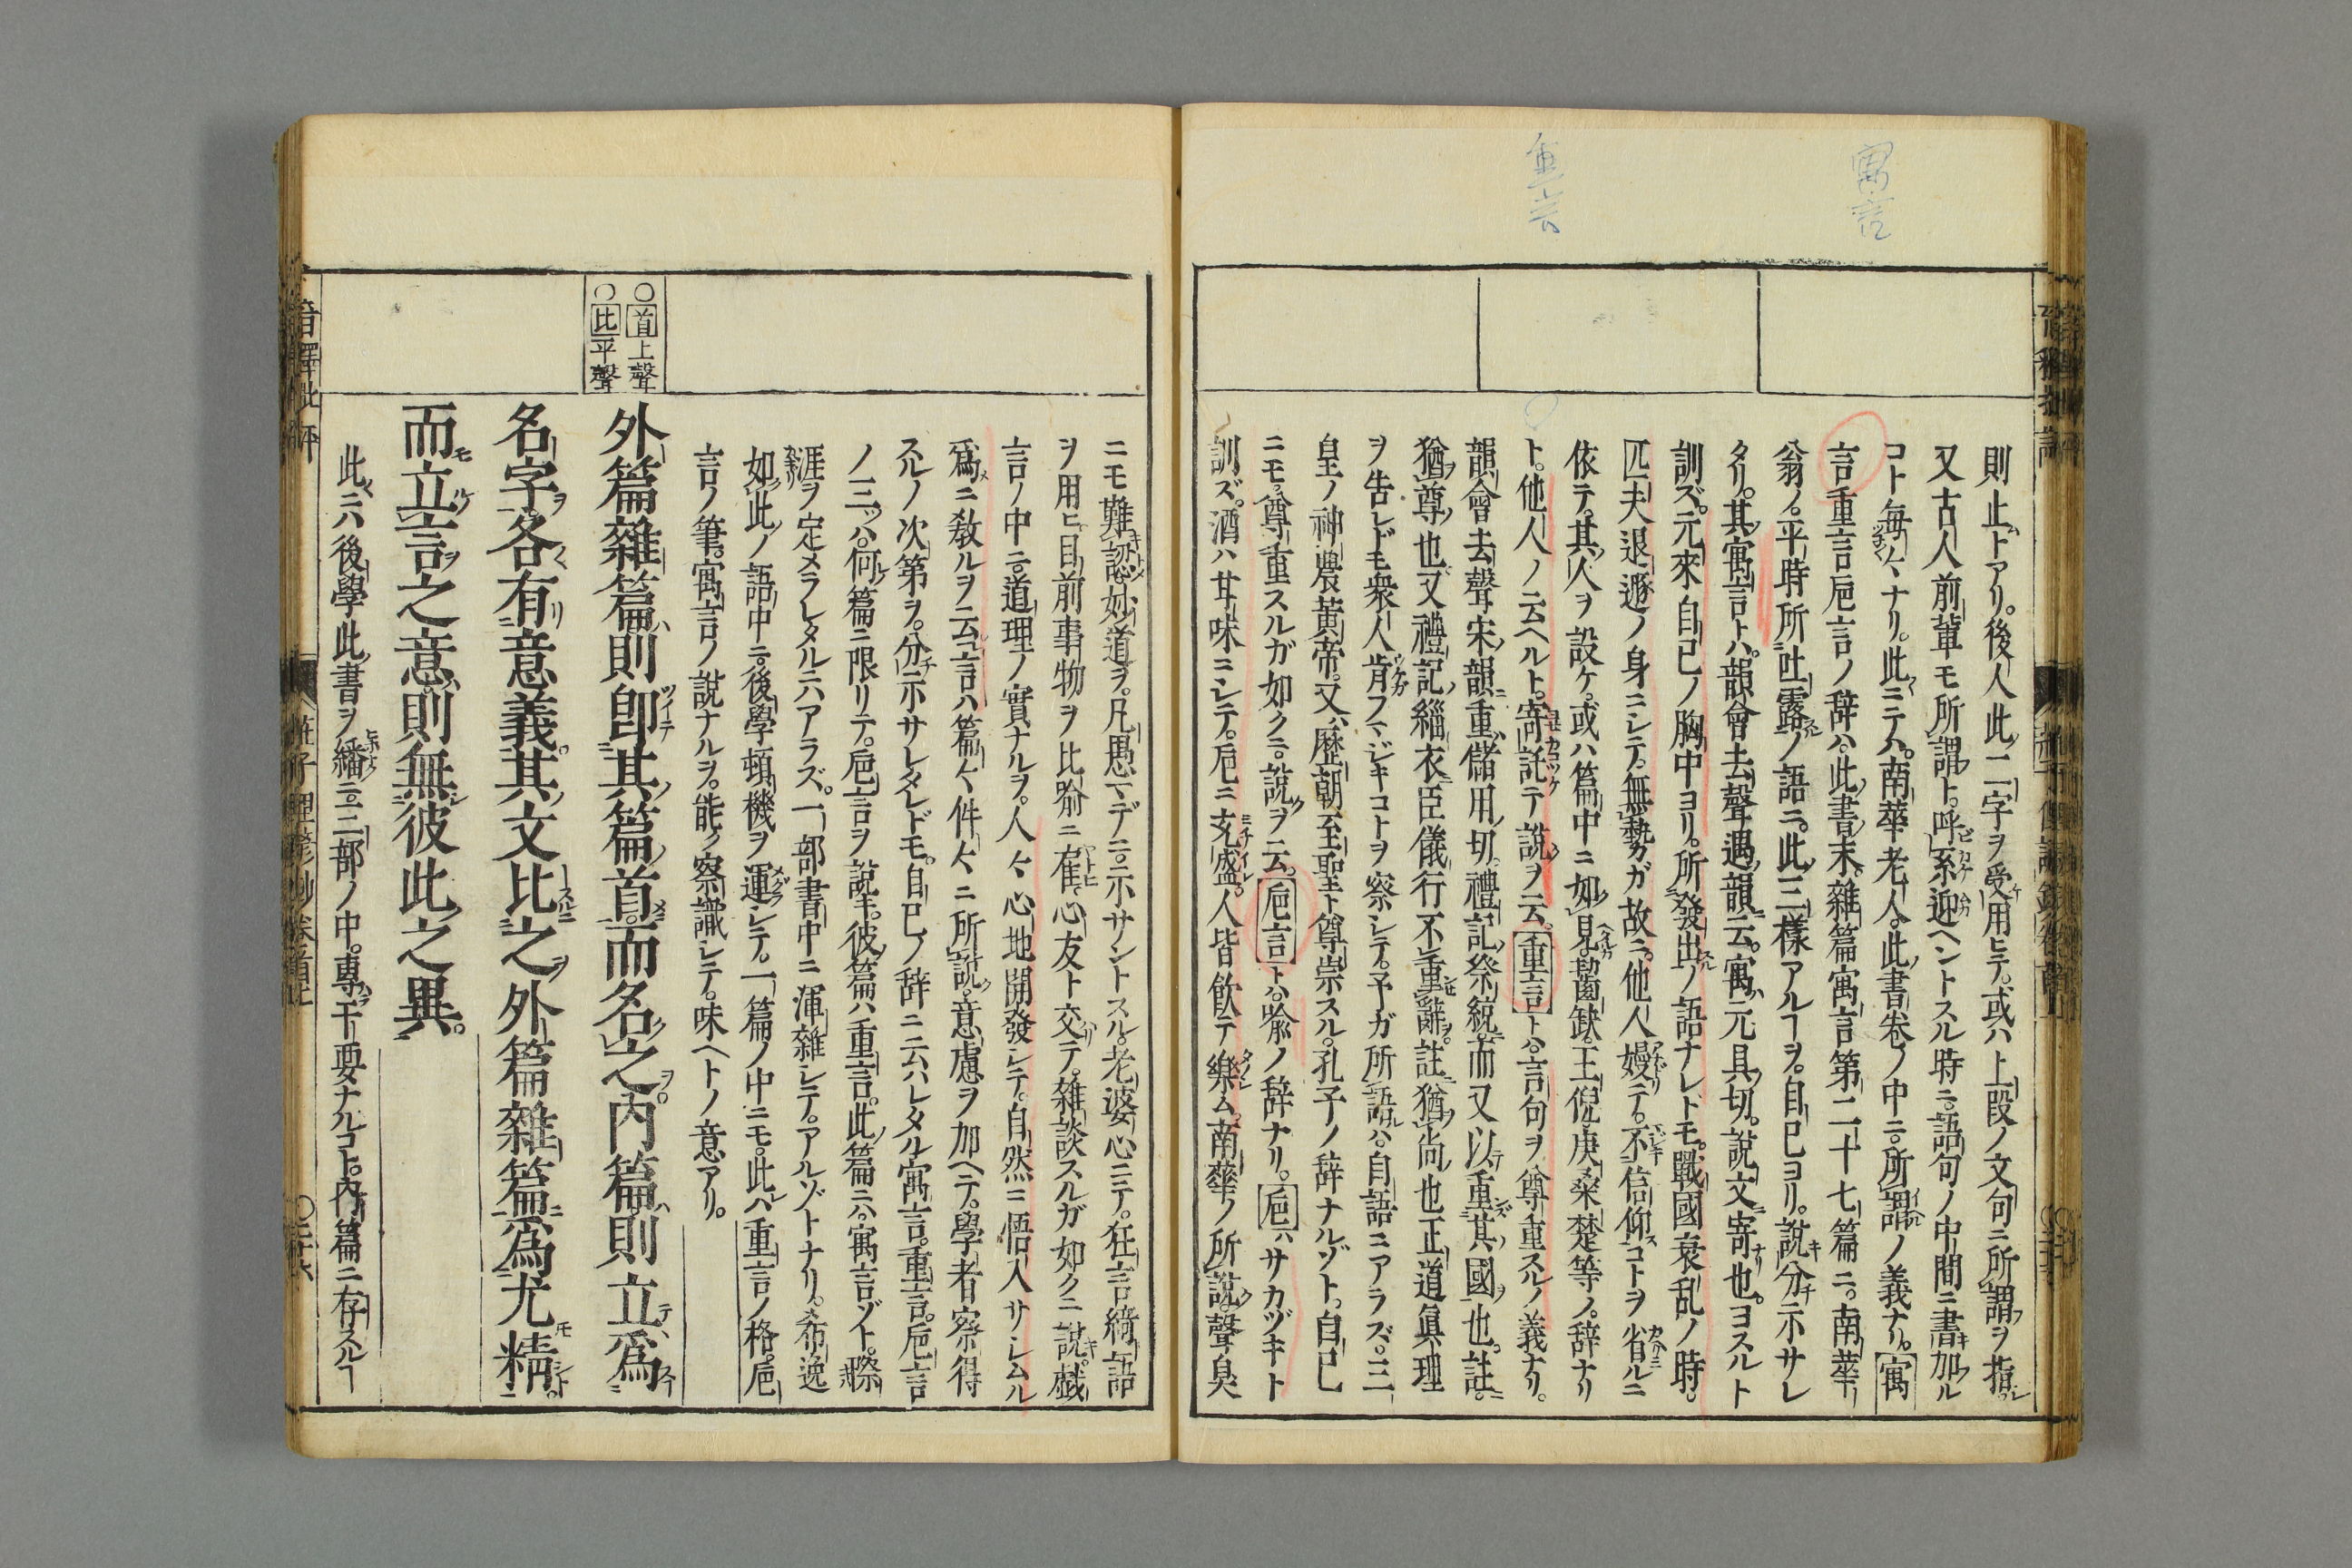 寓言
重言
則止トアリ。後人此ノ二字ヲ受用ヒテ。或ハ上段ノ文句ニ所謂ヲ指
又古人前輩モ所謂ト。呼系迎ヘントスル時ニ。語句ノ中間ニ書加ル
コト毎々ナリ。此ニテハ。南華老人。此書卷ノ中ニ。所謂ノ義ナリ。寓
言重言巵言ノ辞ハ。此書末。雜篇寓言第二十七篇ニ。南華
翁ノ。平時所吐露ノ語ニ。此三樣アルヿヲ。自己ヨリ。說分示サレ
タリ。其寓言トハ。韻會去聲遇韻云。寓元具切。說文寄也。ヨスルト
訓ズ。元來自己ノ胸中ヨリ。所發出ノ語ナレドモ。戰國衰乱ノ時。
匹夫退遯ノ身ニシテ。無勢ガ故ニ。他人嫚テ。不信仰コトヲ省ルニ
依テ。其人ヲ設ケ。或ハ篇中ニ如見齧缺。王倪。庚桑楚等ノ。辞ナリ
ト。他人ノ云ヘルト。寄託テ說ヲ云。重言トハ。言句ヲ尊重スルノ義ナリ。
韻會去聲宋韻重。儲用切。禮記祭統。而又以重其國也。註。
猶尊也又禮記緇衣臣儀行不重辭。註猶尚也正道眞理
ヲ告レドモ衆人肯フマジキコトヲ察シテ。予ガ所語ハ。自語ニアラズ。三
皇ノ神農黃帝。又ハ歷朝至聖ト尊崇スル。孔子ノ辞ナルゾト。自己
ニモ。尊重スルガ如クニ。說ヲ云。巵言トハ。喩ノ辞ナリ。巵ハサカヅキト
訓ズ。酒ハ甘味ニシテ。巵ニ充盛。人皆飮テ樂ム。南華ノ所說聲臭
ニモ難認妙道ヲ。凡愚マデニ。示サントスル。老婆心ニテ。狂言綺語
ヲ用ヒ。目前事物ヲ比喩ニ隺。心友ト交テ。雜談スルガ如クニ說。戲
言ノ中ニ。道理ノ實ナルヲ。人々心地開發シテ。自然ニ悟入サシムル
爲ニ敎ルヲ云。言ハ篇々件々ニ所說。意慮ヲ加ヘテ。學者察得
スルノ次第ヲ。分示サレタレドモ。自己ノ辞ニ云ハレタル寓言。重言。巵言
ノ三ツハ。何篇ニ限リテ。巵言ヲ說キ。彼篇ハ重言。此篇ニハ。寓言ゾト。際
涯ヲ定メラレタルニハアラズ。一部書中ニ渾雜シテ。アルゾトナリ。希逸
如此ノ語中ニ。後學頓機ヲ運シテ。一篇ノ中ニモ。此ハ重言ノ格。巵
言ノ筆。寓言ノ說ナルヲ。能ク察識シテ。味ヘトノ意アリ。
○首上聲
○比平聲
外篇雜篇則卽其篇首而名之內篇則立爲
名字各有意義其文比之外篇雜篇爲尤精
而立言之意則無彼此之異。
此ニハ後學此書ヲ繙ニ。三部ノ中。專干要ナルコト。內篇ニ存スルヿ